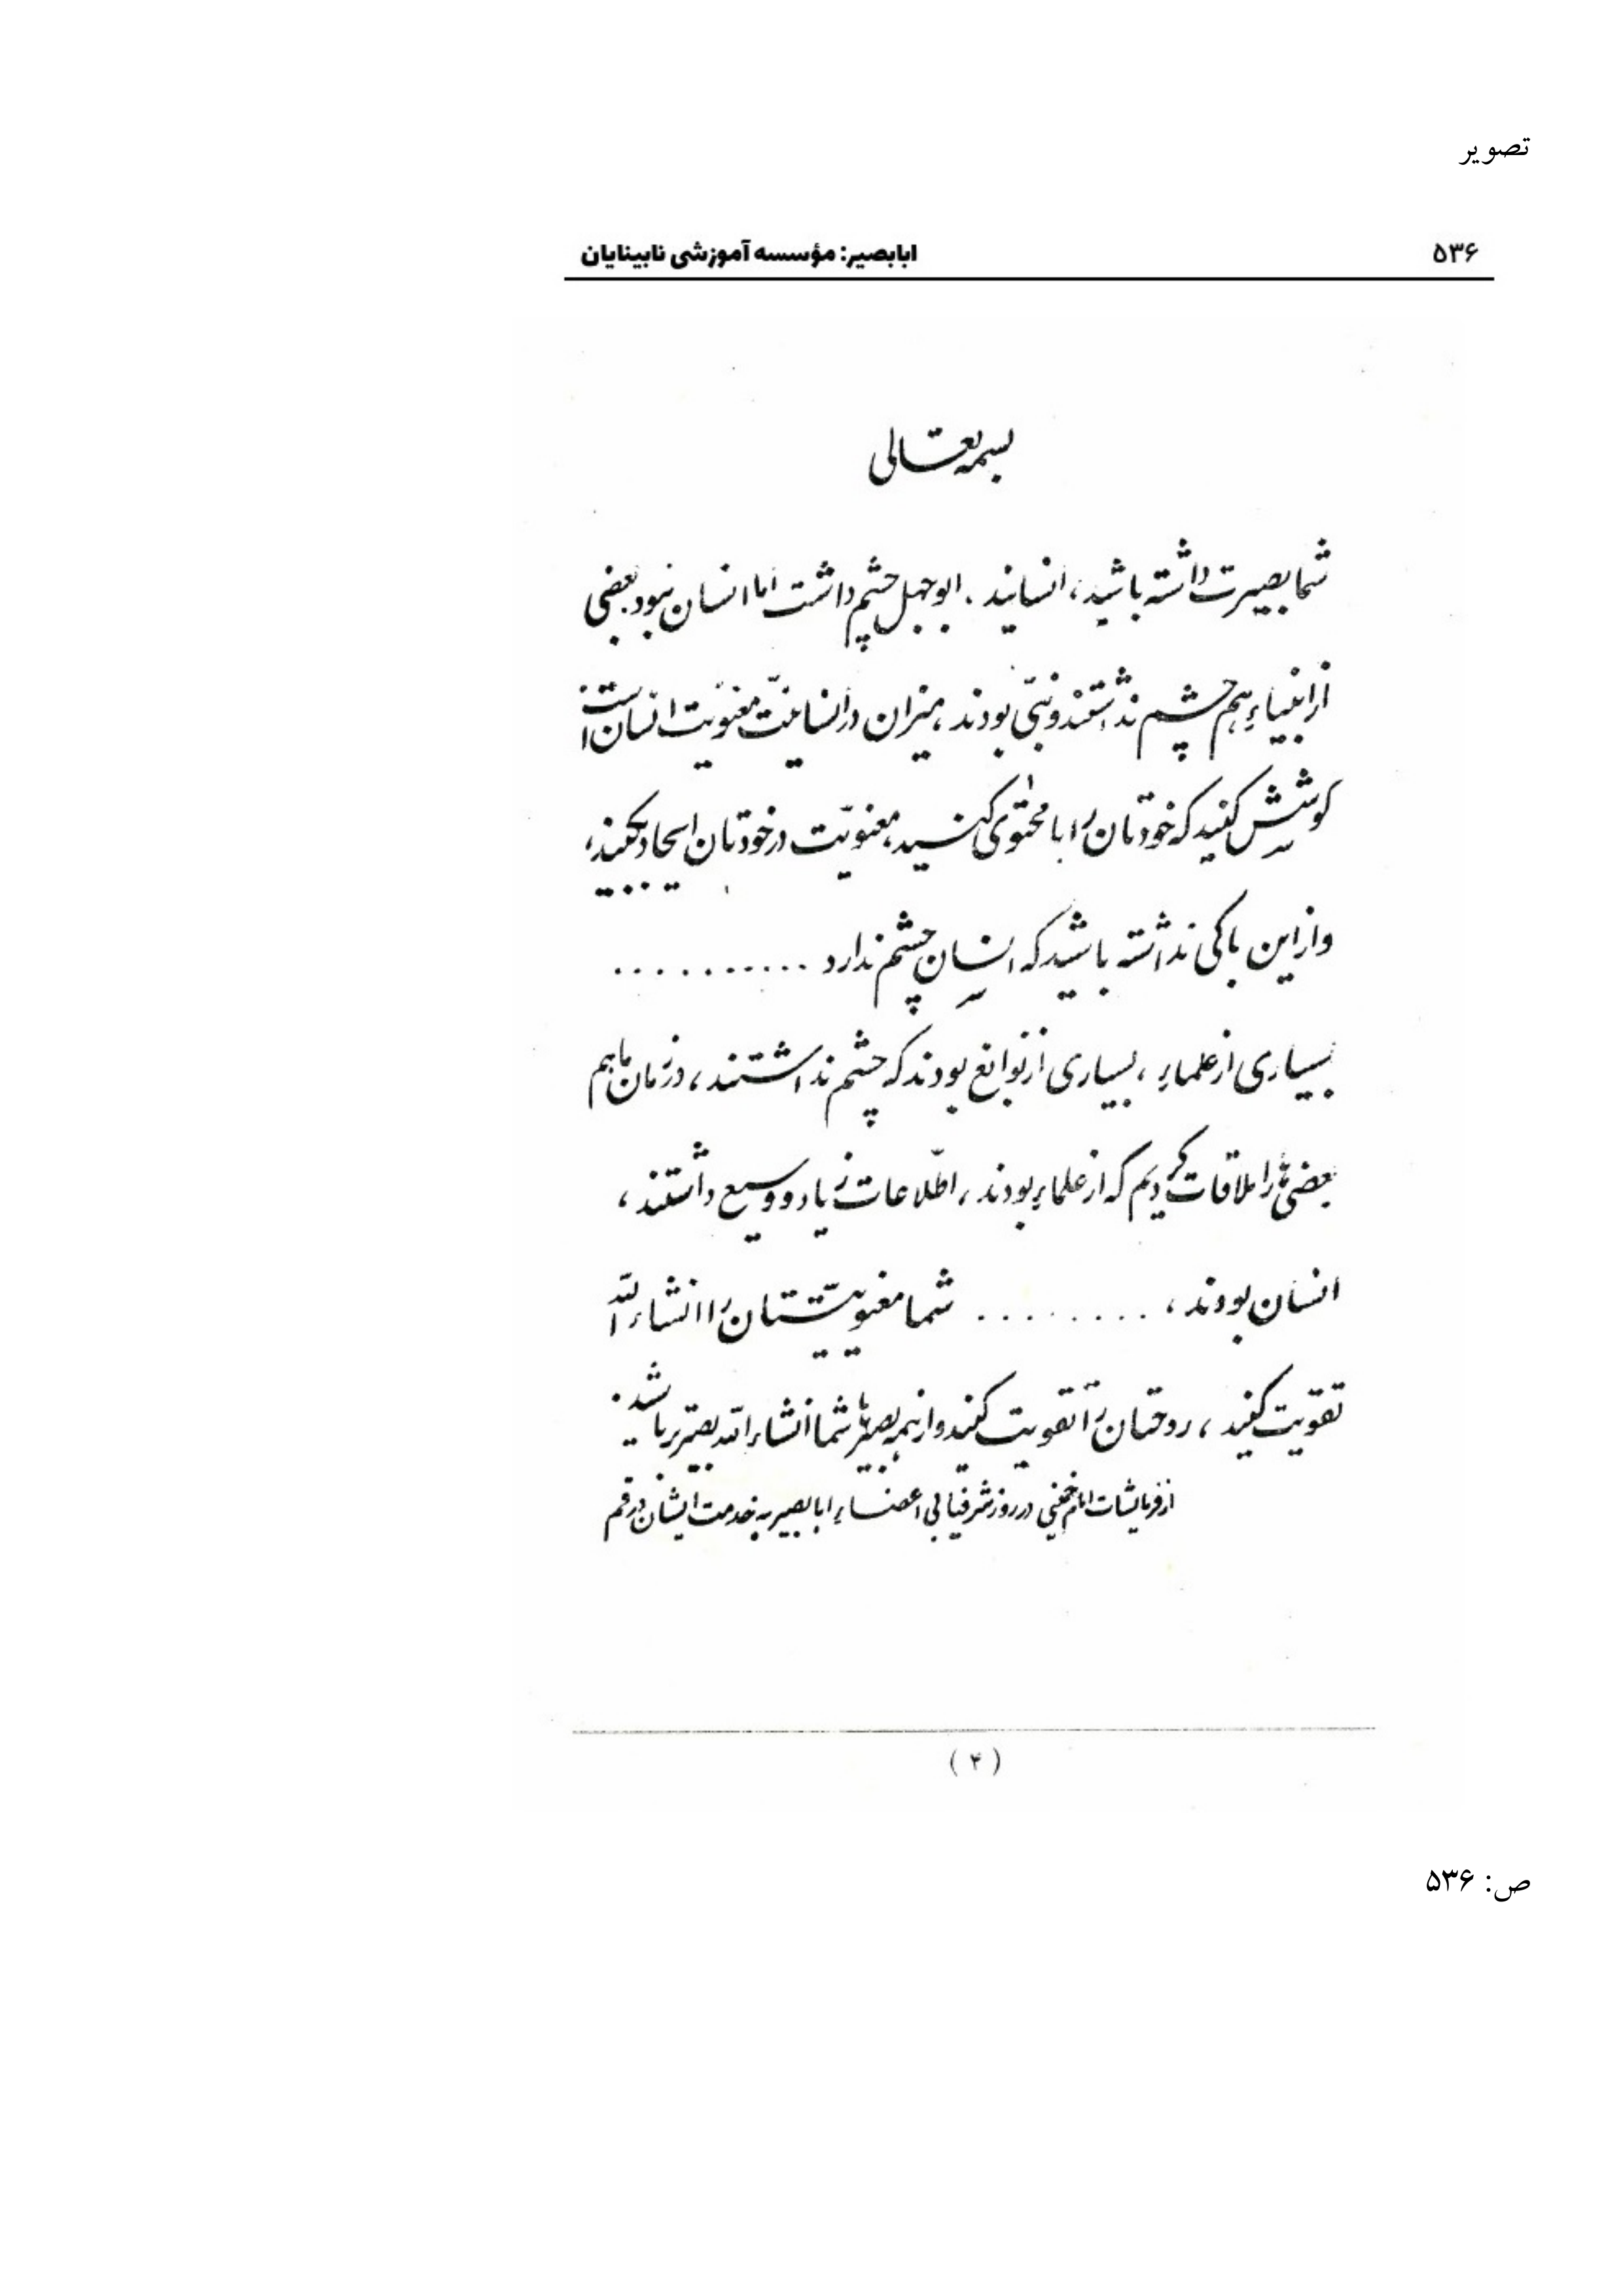 تصویر
۵۳۶
ابابصیر: مؤسسه آموزشی نابینایان
بسمه تعالی
شما بصیرت داشته باشید، انسانید. ابوجهل چشم داشت اما انسان نبود بعضی
از انبیاء هم چشم نداشتند و نبی بودند، میزان در انسانیّت معنویّت انسان است
کوشش کنید که خودتان را با محتوی کنید، معنویّت در خودتان ایجاد بکنید،
و از این باکی نداشته باشید که انسان چشم ندارد ...........
بسیاری از علماء، بسیاری از نوابغ بودند که چشم نداشتند، در زمان ما هم
بعضی‌ها را ملاقات کردیم که از علماء بودند، اطّلاعات زیاد و وسیع داشتند،
انسان بودند، ......... شما معنویّتتان را انشاءالله
تقویت کنید، روحتان را تقویت کنید و از همه بصیرها شما انشاءالله بصیرتر باشید.
از فرمایشات امام خمینی در روز شرفیابی اعضاء ابابصیر به خدمت ایشان در قم
(۴)
ص: ۵۳۶